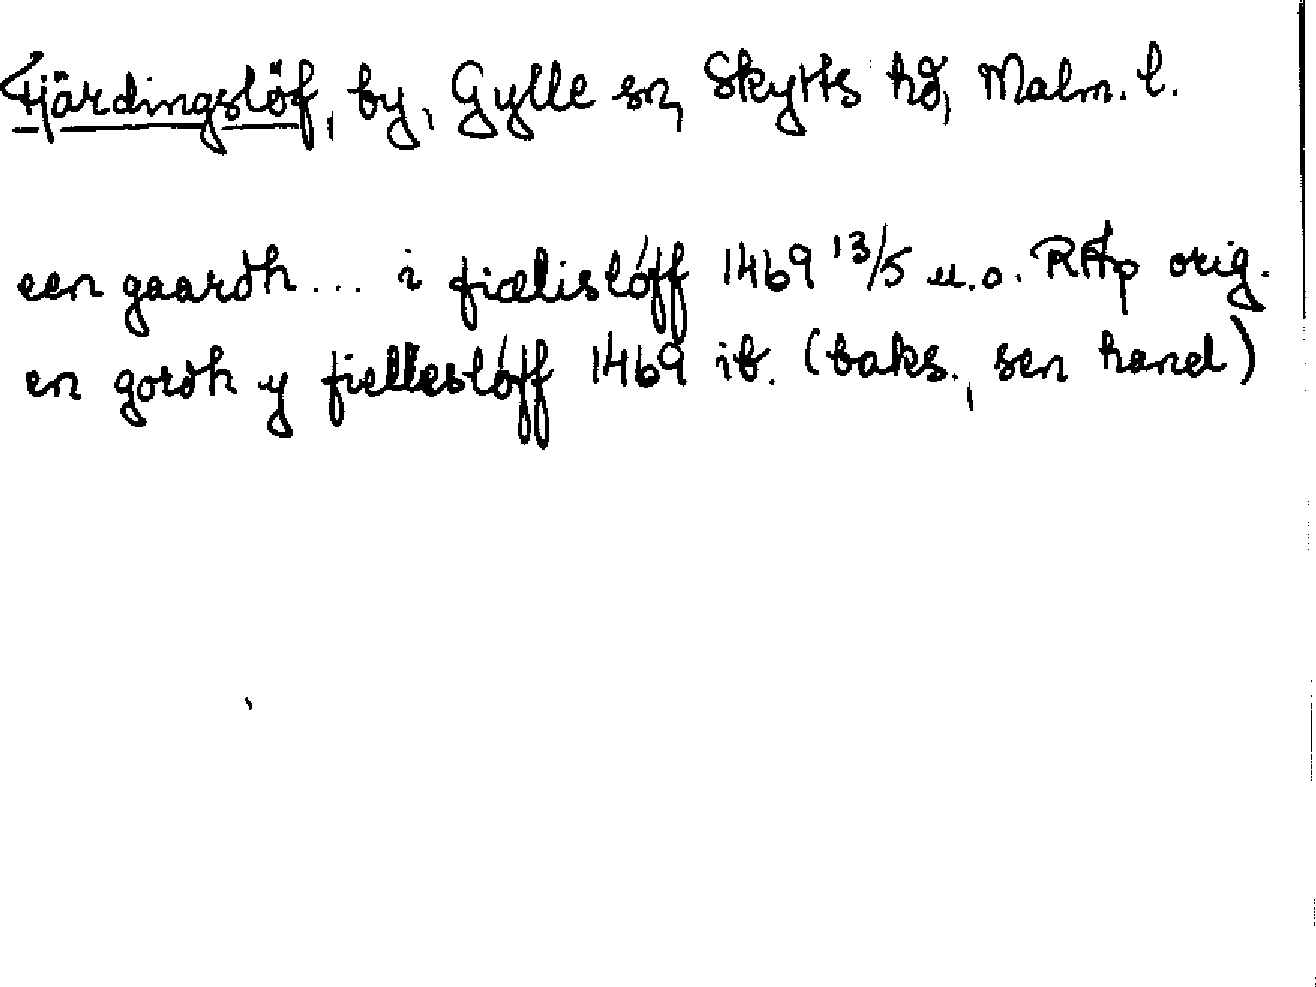 Fjärdingslöf, by, Gylle sn, Skytts hd, Malm. l.
een gaardh ... i fiælislóff 1469 13/5 u.o. RAp orig.
en gordh y fielleslóff 1469 ib. (baks., sen hand)